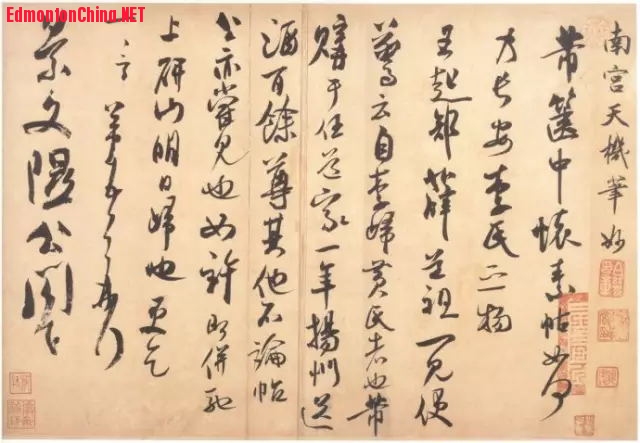 EdmontonChina.NET
南宫天機筆妙
芾篋中懷素帖如何
乃長安李氏之物
王起部薛道祖一見便
驚云自李歸黃氏者也芾
購于任道家一年揚州送
酒百餘尊其他不論帖
公亦嘗見也如許即併馳
上研山明日歸也更乞
一言芾頓首再拜
景文隰公閣下